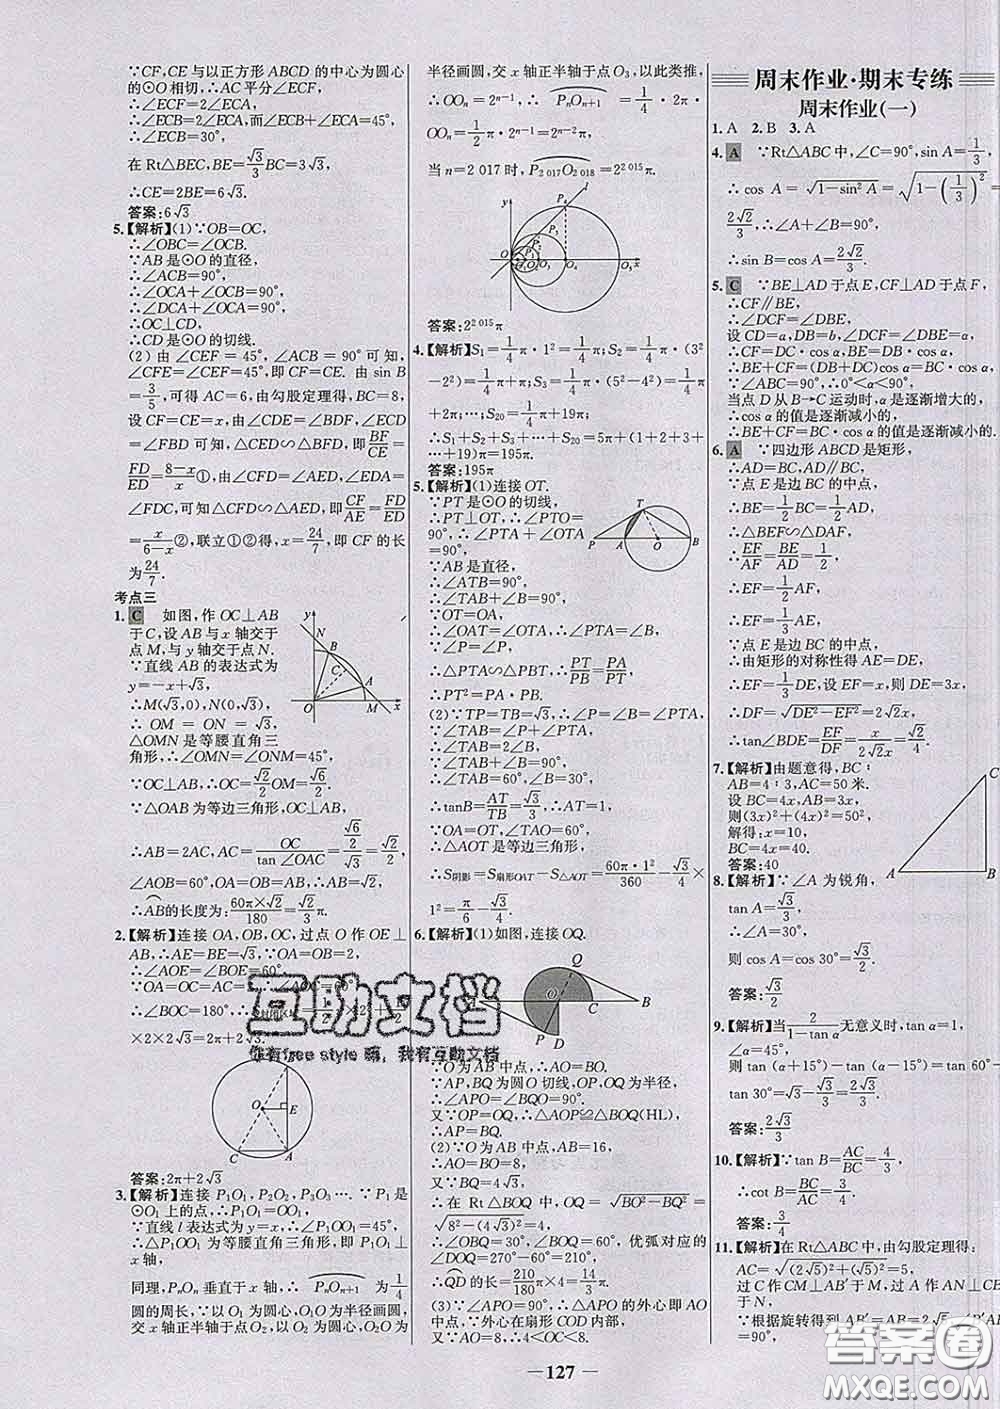 ∵CF,CE与以正方形ABCD的中心为圆心
的⊙O相切,∴AC平分∠ECF,
∴∠ECF=2∠ECA,
∴∠ECB=2∠ECA,而∠ECB+∠ECA=45°,
∴∠ECB=30°,
在Rt△BEC,BE=√3/3BC=3√3,
∴CE=2BE=6√3.
答案:6√3
5.【解析】(1)∵OB=OC,
∴∠OBC=∠OCB.
∵AB是⊙O的直径,
∴∠ACB=90°,
∴∠OCA+∠OCB=90°,
∴∠DCA+∠OCA=90°,
∴OC⊥CD,
∴CD是⊙O的切线.
(2)由∠CEF=45°,∠ACB=90°可知,
∠CFE=∠CEF=45°,即CF=CE.由sin B
=3/5,可得AC=6,由勾股定理得,BC=8,
设CF=CE=x,由∠CDE=∠BDF,∠ECD
=∠FBD可知,△CED∽△BFD,即BF/CE=
FD/ED=(8-x)/x①,由∠CFD=∠AED,∠EAD=
∠FDC,可知△CFD∽△AED,即CF/AE=FD/ED
=x/(6-x)②,联立①②得,x=24/7,即CF的长
为24/7.
考点三
1. C 如图,作OC⊥AB
于C,设AB与x轴交于
点M,与y轴交于点N.
∵直线AB的表达式为
y=-x+√3,
∴M(√3,0),N(0,√3),
∴OM=ON=√3,
△OMN是等腰直角三
角形,∴∠OMN=∠ONM=45°,
∵OC⊥AB,∴OC=√2/2OM=√6/2.
∵△OAB为等边三角形,OC⊥AB,
∴AB=2AC,AC=OC/tan∠OAC=(√6/2)/√3=√2/2,
∠AOB=60°,OA=OB=AB=√2,
∴AB的长度为:60π×√2/180=√2/3π.
2.【解析】连接OA,OB,OC,过点O作OE⊥
AB,∴AE=BE=√3.∵OA=OB=2,
∴∠AOE=∠BOE=60°,
∴∠BOC=180°,∴
×2×2√3=2π+2√3.
O E C A
答案:2π+2√3
3.【解析】连接P₁O₁,P₂O₂,P₃O₃….∵P₁是
⊙O₁上的点,∴P₁O₁=OO₁,
∵直线l表达式为y=x,∴∠P₁OO₁=45°,
∴△P₁OO₁为等腰直角三角形,即P₁O₁⊥x
轴,
同理,PₙOₙ垂直于x轴,∴PₙOₙ₊₁为1/4
圆的周长,∵以O₁为圆心,O₁O为半径画圆,
交x轴正半轴于点O₂,以O₂为圆心,O₂O为
半径画圆,交x轴正半轴于点O₃,以此类推,
∴OOₙ=2ⁿ⁻¹,∴PₙOₙ₊₁=1/4·2π·
OOₙ=1/2π·2ⁿ⁻¹=2ⁿ⁻²π,
当n=2 017时,P₂ ₀₁₇O₂ ₀₁₈=2²⁰¹⁵π.
答案:2²⁰¹⁵π
4.【解析】S₁=1/4π·1²=1/4π;S₂=1/4π·(3²
-2²)=1/4π+π;S₃=1/4π·(5²-4²)=1/4π
+2π;…;S₂₀=1/4π+19π;
∴S₁+S₂+S₃+…+S₂₀=5π+(1+2+3+
…+19)π=195π.
答案:195π
5.【解析】(1)连接OT.
∵PT是⊙O的切线,
∴PT⊥OT,∴∠PTO=
90°,∴∠PTA+∠OTA
=90°,
∵AB是直径,
∴∠ATB=90°,
∴∠TAB+∠B=90°,
∵OT=OA,
∴∠OAT=∠OTA,∴∠PTA=∠B,
∵∠P=∠P,
∴△PTA∽△PBT,∴PT/PB=PA/PT,
∴PT²=PA·PB.
(2)∵TP=TB=√3,∴∠P=∠B=∠PTA,
∵∠TAB=∠P+∠PTA,
∴∠TAB=2∠B,
∵∠TAB+∠B=90°,
∴∠TAB=60°,∠B=30°,
∴tanB=AT/TB=√3/3,∴AT=1,
∵OA=OT,∠TAO=60°,
∴△AOT是等边三角形,
∴S阴影=S扇形OAT-S△AOT=60π·1²/360-√3/4×
1²=π/6-√3/4.
6.【解析】(1)如图,连接OQ.
∵O为AB中点,∴AO=BO,
∵AP,BQ为圆O切线,OP,OQ为半径,
∴∠APO=∠BQO=90°.
又∵OP=OQ,∴△AOP≌△BOQ(HL),
∴AP=BQ.
(2)∵O为AB中点,AB=16,
∴AO=BO=8,
又∵BQ=4√3,
∴在Rt△BOQ中,OQ=√(BO²-BQ²)=
√(8²-(4√3)²)=4,
∴∠OBQ=30°,∠BOQ=60°,优弧对应的
∠DOQ=270°-60°=210°,
∴QD的长=210/180π×4=14/3π.
(3)∵∠APO=90°,∴△APO的外心即AO
中点,∵外心在扇形COD内部,
又∵AO=8,∴4<OC<8.
周末作业·期末专练
周末作业(一)
1. A 2. B 3. A
4. A ∵Rt△ABC中,∠C=90°,sin A=1/3,
∴cos A=√(1-sin²A)=√(1-(1/3)²)=
2√2/3,∴∠A+∠B=90°,
∴sin B=cos A=2√2/3.
5. C ∵BE⊥AD于点E,CF⊥AD于点F,
∴CF∥BE,
∴∠DCF=∠DBE,
设CD=a,DB=b,∠DCF=∠DBE=α,
∴CF=DC·cos α,BE=DB·cos α,
∴BE+CF=(DB+DC)cos α=BC·cos α,
∵∠ABC=90°,∴0°<α<90°,
当点D从B→C运动时,α是逐渐增大的,
∴cos α的值是逐渐减小的,
∴BE+CF=BC·cos α的值是逐渐减小的.
6. A ∵四边形ABCD是矩形,
∴AD=BC,AD∥BC,
∵点E是边BC的中点,
∴BE=1/2BC=1/2AD,
∴△BEF∽△DAF,
∴EF/AF=BE/AD=1/2,
∴EF=1/2AF,
∴EF=1/3AE,
∵点E是边BC的中点,
∴由矩形的对称性得AE=DE,
∴EF=1/3DE,设EF=x,则DE=3x,
∴DF=√(DE²-EF²)=2√2x,
∴tan∠BDE=EF/DF=x/2√2x=√2/4.
7.【解析】由题意得,BC:
AB=4:3,AC=50米.
设BC=4x,AB=3x,
则(3x)²+(4x)²=50²,
解得:x=10,
BC=4x=40.
答案:40
8.【解析】∵∠A为锐角,
tan A=√3/3,
∴∠A=30°.
则cos A=cos 30°=√3/2.
答案:√3/2
9.【解析】当2/(1-tanα)无意义时,tan α=1,
∠α=45°,
则tan(α+15°)-tan(α-15°)=tan 60°-
tan 30°=√3-√3/3=2√3/3.
答案:2√3/3
10.【解析】∵tan B=AC/BC=4/3,
∴cot B=BC/AC=3/4.
答案:3/4
11.【解析】在Rt△ABC中,由勾股定理得:
AC=√((2√5)²+(√5)²)=5,
过C作CM⊥AB′于M,过A作AN⊥CB′
于N,
∵根据旋转得到AB′=AB=2√5,∠B′AB
=90°,
互助文档
你有free style 嘛,我有互助文档
答案圈
MXQE.COM
127